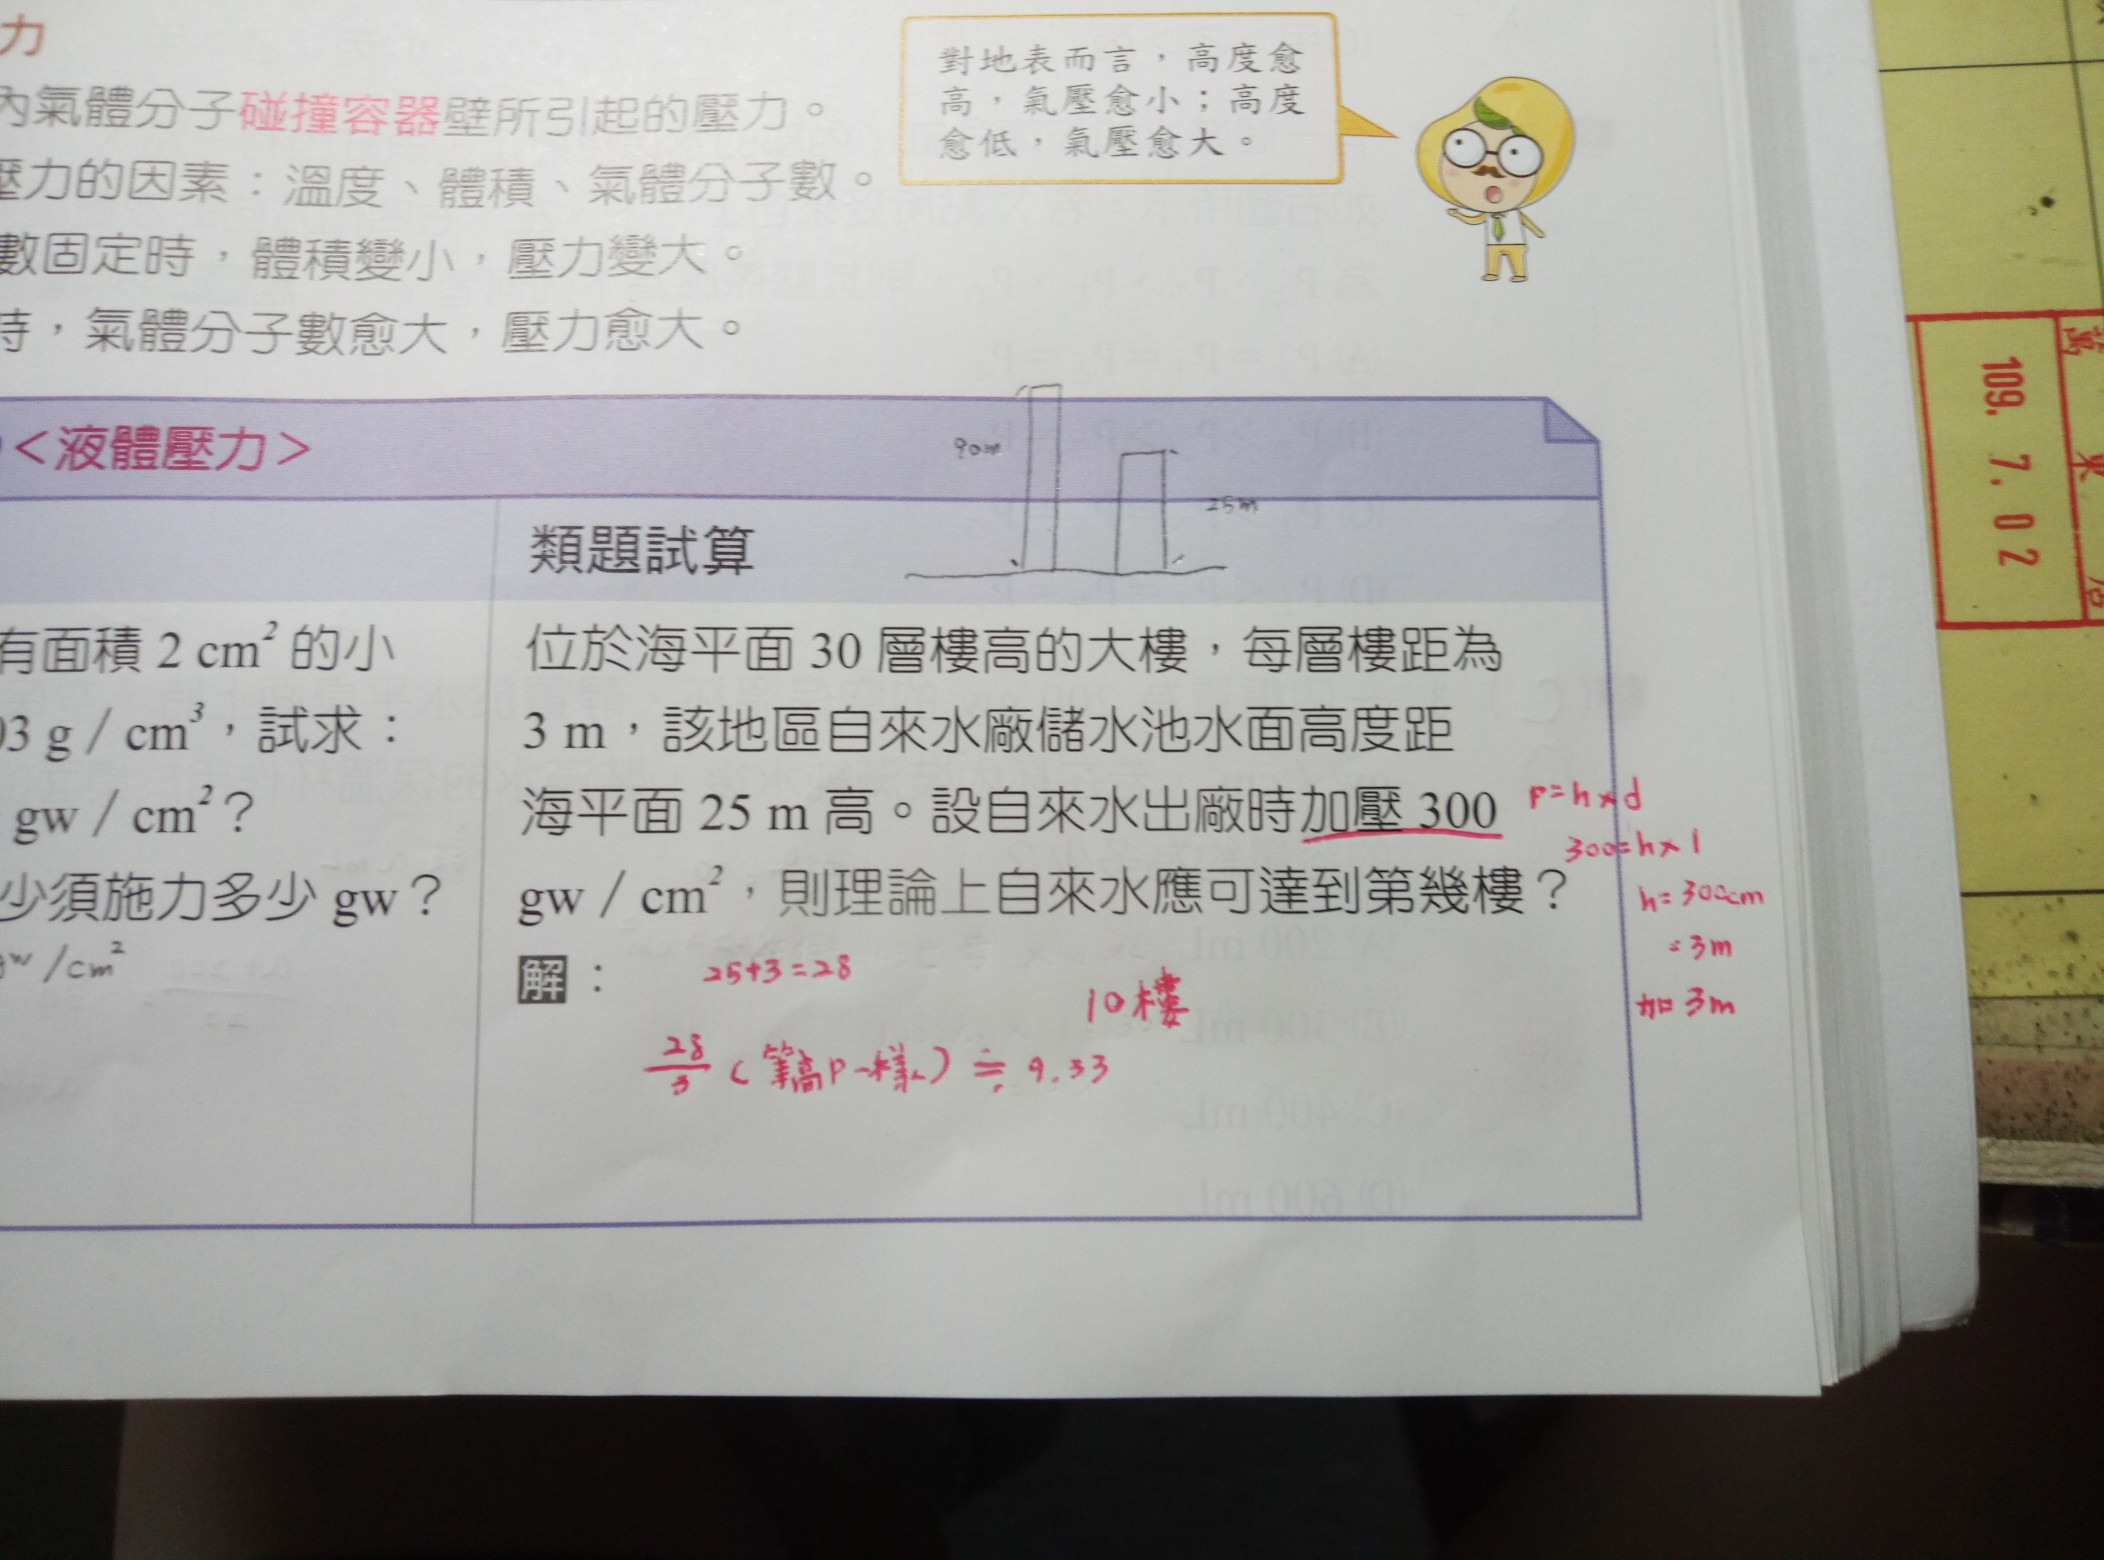 力
內氣體分子碰撞容器壁所引起的壓力。
壓力的因素：溫度、體積、氣體分子數。
數固定時，體積變小，壓力變大。
時，氣體分子數愈大，壓力愈大。
對地表而言，高度愈
高，氣壓愈小；高度
愈低，氣壓愈大。
<液體壓力>
90m
25m
有面積 2 cm² 的小
03 g / cm³，試求：
gw / cm²？
少須施力多少 gw？
gw/cm²
類題試算
位於海平面 30 層樓高的大樓，每層樓距為
3 m，該地區自來水廠儲水池水面高度距
海平面 25 m 高。設自來水出廠時加壓 300
gw / cm²，則理論上自來水應可達到第幾樓？
解：
25+3=28
10樓
28/3 (等高P一樣) ≒ 9.33
P=h×d
300=h×1
h=300cm
=3m
加3m
109. 7. 02